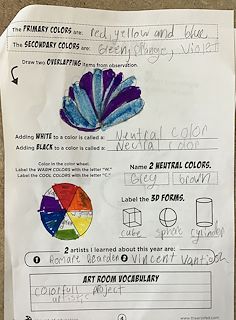 The PRIMARY COLORS are: red, yellow and blue
The SECONDARY COLORS are: Green, Orange, Violet
Draw two OVERLAPPING items from observation.
Adding WHITE to a color is called a: Neutral color
Adding BLACK to a color is called a: Neutral color
Color in the color wheel.
Label the WARM COLORS with the letter "W."
Label the COOL COLORS with the letter "C."
Name 2 NEUTRAL COLORS.
Grey brown
Label the 3D FORMS.
cube sphere cylinder
2 artists i learned about this year are:
1 Romare Bearden 2 Vincent Van
ART ROOM VOCABULARY
colorfull project
artistic
4